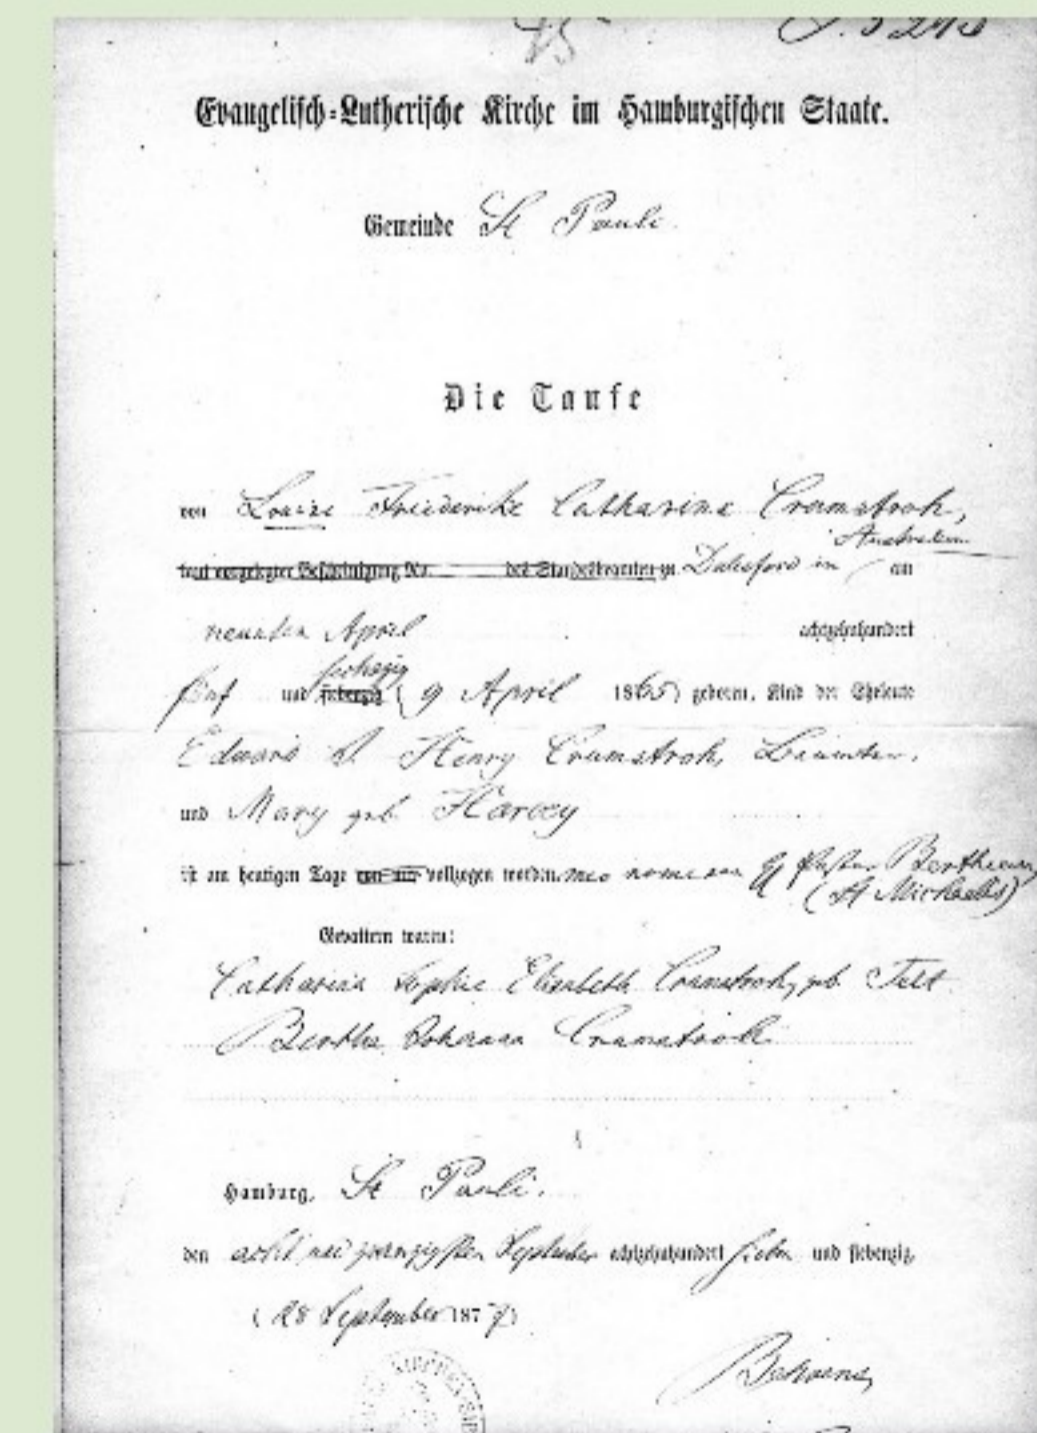 Evangelisch-Lutherische Kirche im Hamburgischen Staate.
Gemeinde St Pauli.
Die Taufe
von Louise Friederike Catharine Cramstroh,
Australien
laut vorgelegter Bescheinigung No. des Standesbeamten zu Dalesford in am
neunten April achtzehnhundert
sechszig
fünf und siebenzig (9 April 1865) geboren, Kind der Eheleute
Edward J. Henry Crumstroh,
und Mary geb. Harvey
ist am heutigen Tage von mir vollzogen worden. meo nomine Pastor Bertheau
(St Michaelis)
Gevattern waren:
Catharina Sophie Elisabeth Cramstroh, geb.
Bertha Johanna Cramstroh
Hamburg, St Pauli.
den acht und zwanzigsten September achtzehnhundert sieben und siebenzig,
(28 September 1877)